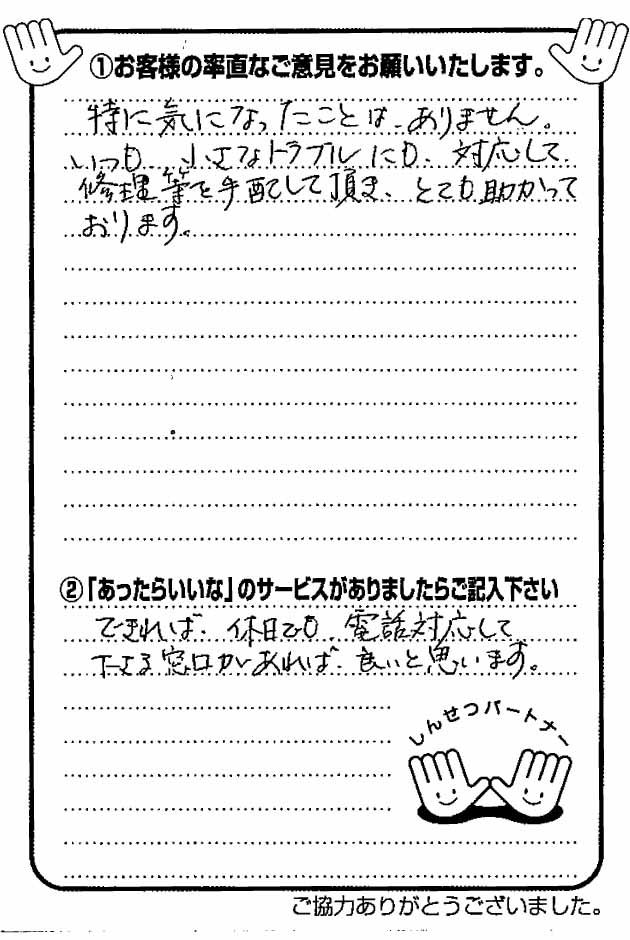 ①お客様の率直なご意見をお願いいたします。
特に気になったことは、ありません。
いつも、小さなトラブルにも、対応して、
修理等を手配して頂き、とても助かって
おります。
②「あったらいいな」のサービスがありましたらご記入下さい
できれば、休日でも、電話対応して
下さる窓口があれば、良いと思います。
しんせつパートナー
ご協力ありがとうございました。